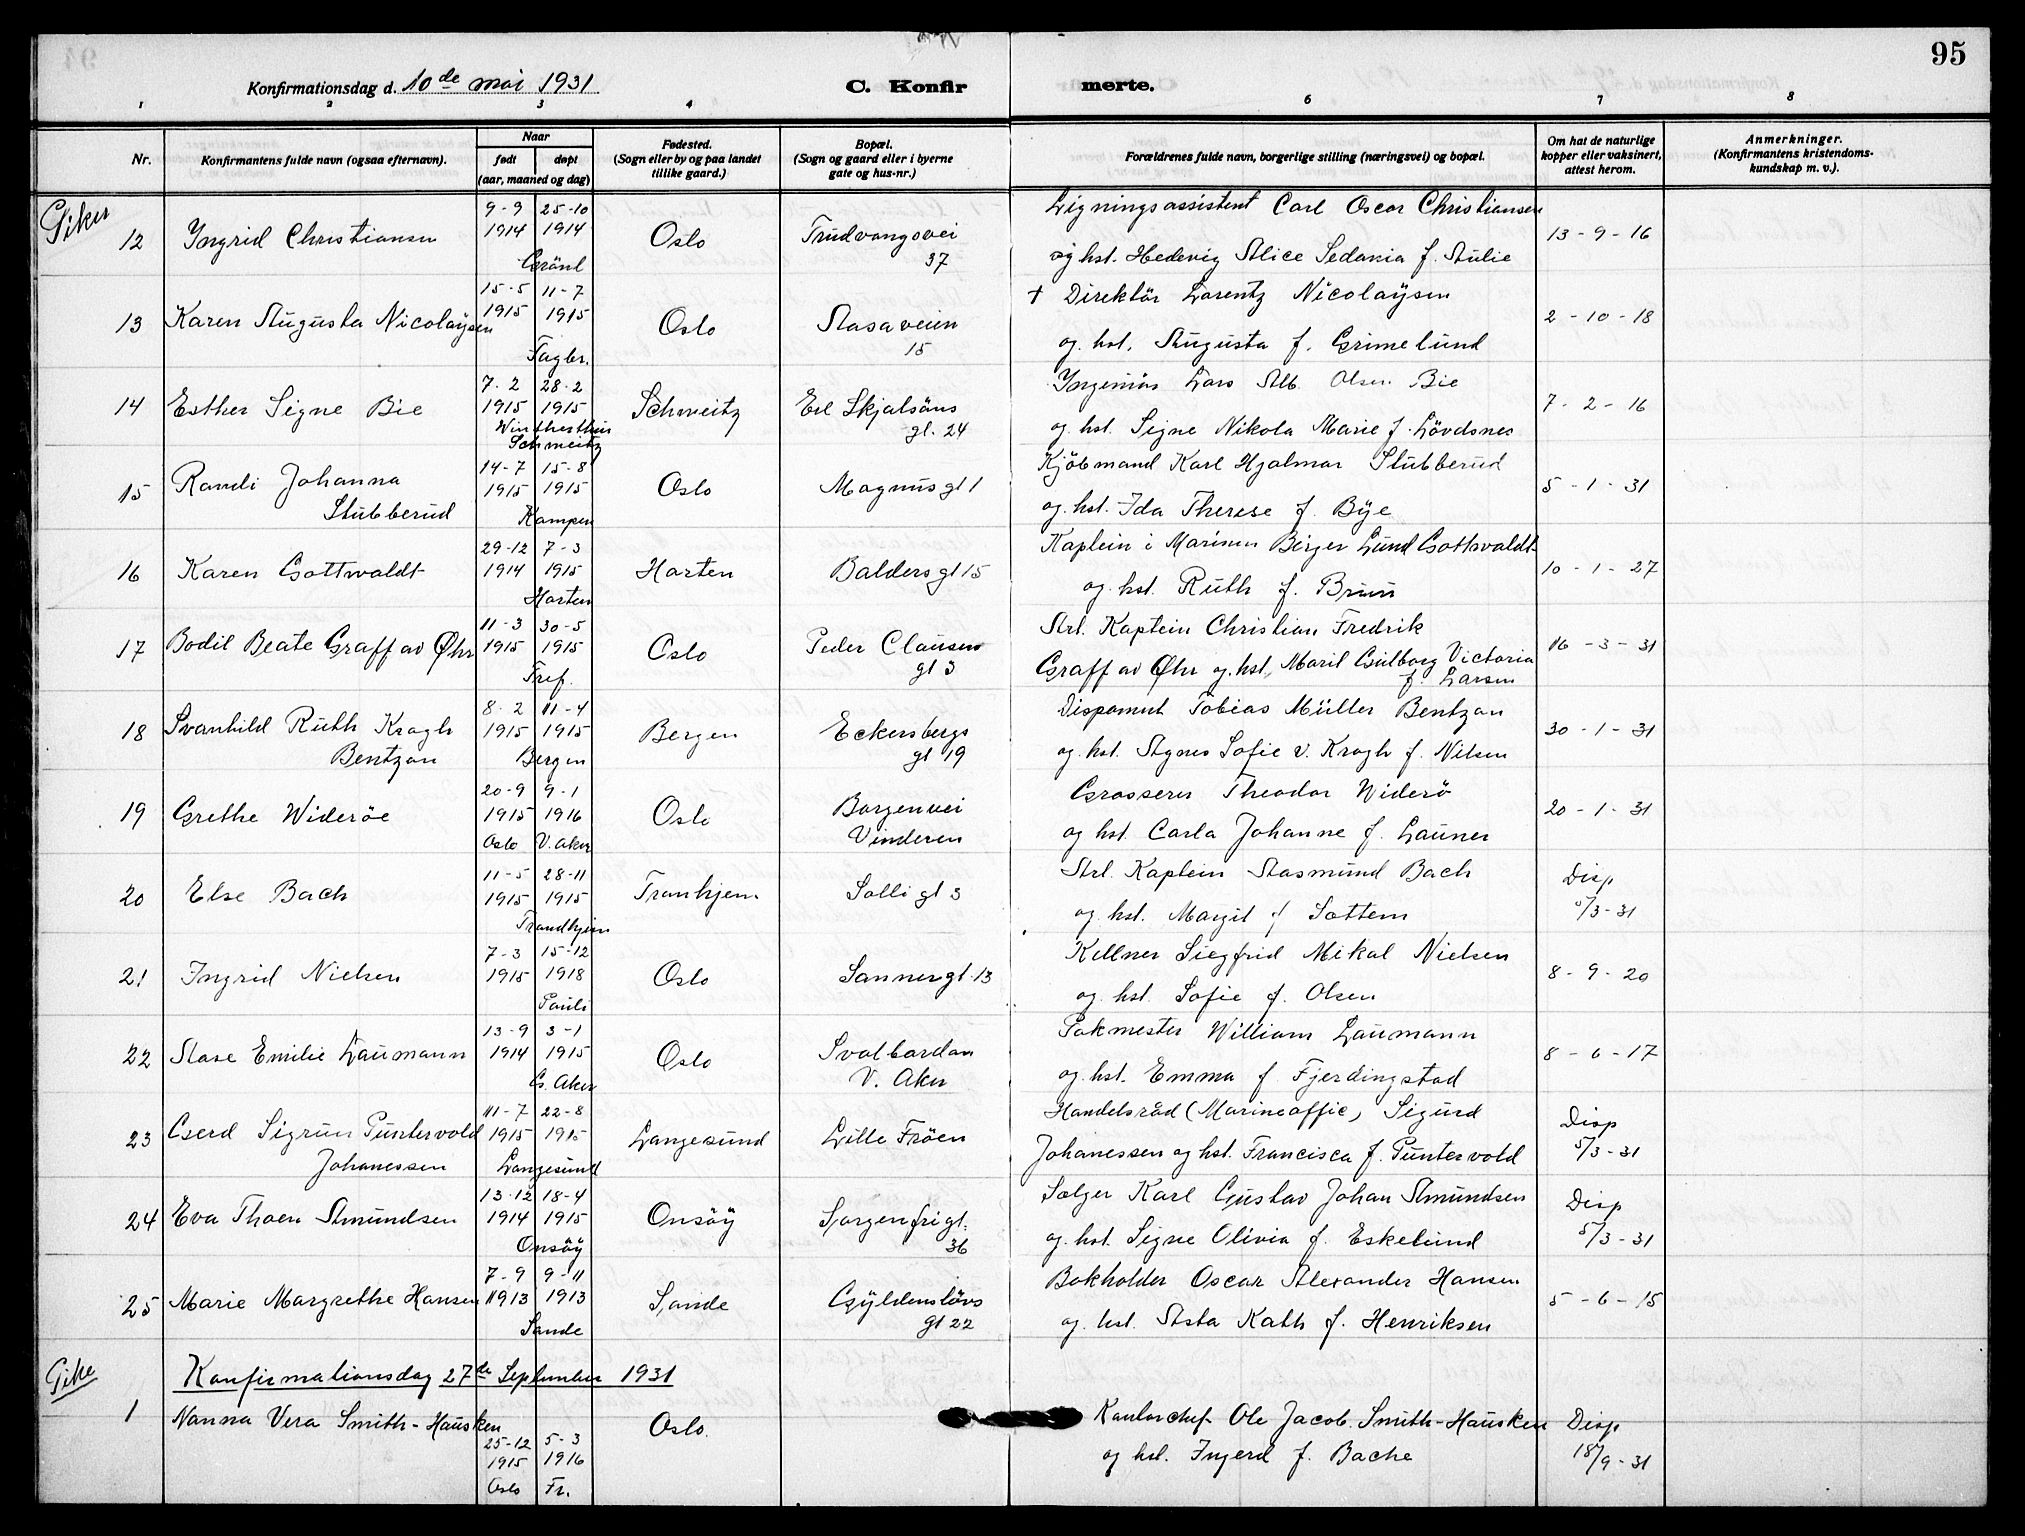 95
Konfirmationsdag d. 10de mai 1931
C. Konfirmerte.
1 2 3 4 6 7 8
Nr.
Konfirmantens fulde navn (ogsaa efternavn).
Naar
født døpt
(aar, maaned og dag)
Fødested.
(Sogn eller by og paa landet
tillike gaard.)
Bopæl.
(Sogn og gaard eller i byerne
gate og hus-nr.)
Forældrenes fulde navn, borgerlige stilling (næringsvei) og bopæl.
Om hat de naturlige
kopper eller vaksinert,
attest herom.
Anmerkninger.
(Konfirmantens kristendoms-
kundskap m. v.).
Piker
12 Yngrid Christiansen
9-9 25-10
1914 1914
Grönl
Oslo
Trudvangsvei
37
Ligningsassistent Carl Oscar Christiansen
og hst. Hedevig Alice Sedania f. Aulie
13-9-16
13 Karen Augusta Nicolaÿsen
15-5 11-7
1915 1915
Fagbr.
Oslo
Aasaveien
15
† Direktör Lorentz Nicolaÿsen
og hst. Augusta f. Grimelund
2-10-18
14 Esther Signe Bie
7-2 28-2
1915 1915
Wintherthur
Schweitz
Schweitz
Erl Skjalsöns
gt. 24
Yngeniör Lars Alb. Olsen Bie
og hst. Signe Nikola Marie f. Lövdsnes
7-2-16
15 Randi Johanna
Stubberud
14-7 15-8
1915 1915
Kampen
Oslo
Magnusgt 1
Kjöbmand Karl Hjalmar Stubberud
og hst. Ida Therese f. Bÿe
5-1-31
16 Karen Gottwaldt
29-12 7-3
1914 1915
Horten
Horten
Baldersgt 15
Kaptein i Marinen Birger Lund Gottwaldt
og hst. Ruth f. Bruun
10-1-27
17 Bodil Beate Graff av Øhr
11-3 30-5
1915 1915
Tref.
Oslo
Peder Clausens
gt 3
Art. Kaptein Christian Fredrik
Graff av Øhr og hst. Maril Gulborg Victoria
f. Larsen
16-3-31
18 Svanhild Ruth Kragh
Bentzon
8-2 11-4
1915 1915
Bergen
Bergen
Eckersbergs
gt 19
Disponent Tobias Müller Bentzon
og hst. Agnes Sofie v. Krogh f. Nilsen
30-1-31
19 Grethe Wideröe
20-9 9-1
1915 1916
Oslo V. Aker
Oslo
Borgenvei
Vinderen
Grosserer Theodor Widerö
og hst. Carla Johanne f. Launer
20-1-31
20 Else Bach
11-5 28-11
1915 1915
Trondhjem
Tronhjem
Solli gt 3
Art. Kaptein Aasmund Bach
og hst. Margit f. Sottem
Disp
5/3-31
21 Ingrid Nielsen
7-3 15-12
1915 1918
Pauli
Oslo
Sannergt. 13
Kellner Siegfrid Mikal Nielsen
og hst. Sofie f. Olsen
8-9-20
22 Aase Emilie Laumann
13-9 3-1
1914 1915
G. Aker
Oslo
Svalbardan
V. Aker
Pakmester William Laumann
og hst. Emma f. Fjerdingstad
8-6-17
23 Gerd Sigrun Puntervold
Johanessen
11-7 22-8
1915 1915
Langesund
Langesund
Lille Fröen
Handelsråd (Marineoffic) Sigurd
Johanessen og hst. Francisca f. Puntervold
Disp
5/3-31
24 Eva Thoen Amundsen
13-12 18-4
1914 1915
Onsöÿ
Onsöÿ
Sorgenfrigt.
36
Sælger Karl Gustav Johan Amundsen
og hst. Signe Olivia f. Eskelund
Disp
5/3-31
25 Marie Margrethe Hansen
7-9 9-11
1913 1913
Sande
Sande
Gÿldenlövs
gt 22
Bokholder Oscar Alexander Hansen
og hst. Asta Kath f. Henriksen
5-6-15
Pike
Konfirmationsdag 27de September 1931
1 Nanna Vera Smith-Hausken
25-12 5-3
1915 1916
Oslo Fr.
Oslo.
Kontorchef Ole Jacob Smith-Hausken
og hst. Ingerd f. Bache
Disp
18/9-31